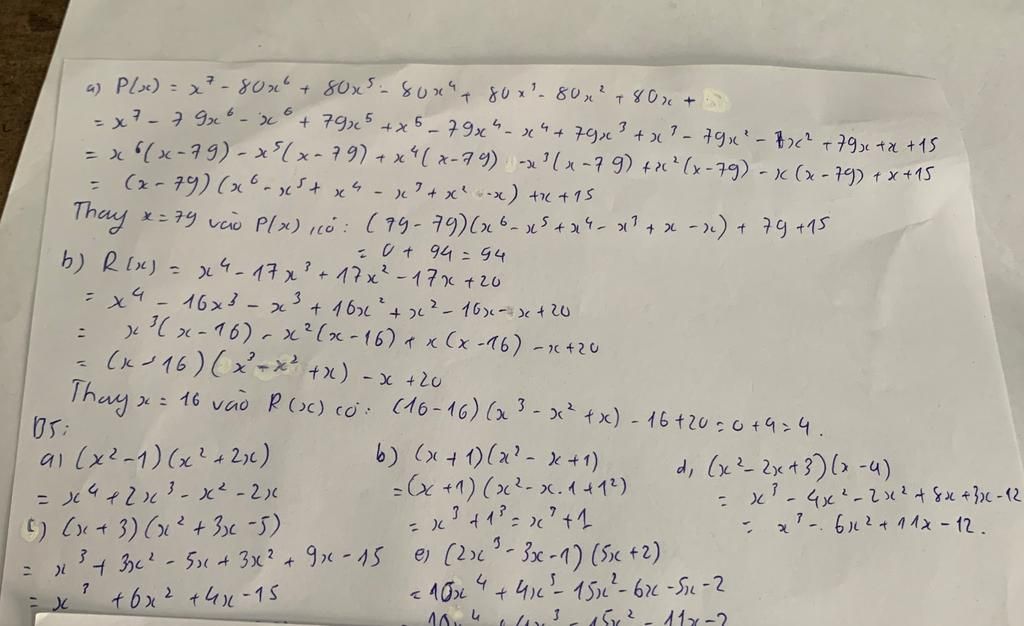 a) P(x) = x⁷ - 80x⁶ + 80x⁵ - 80x⁴ + 80x³ - 80x² + 80x +
= x⁷ - 79x⁶ - x⁶ + 79x⁵ + x⁵ - 79x⁴ - x⁴ + 79x³ + x³ - 79x² - x² + 79x + x + 15
= x⁶(x-79) - x⁵(x-79) + x⁴(x-79) - x³(x-79) + x²(x-79) - x(x-79) + x + 15
= (x-79)(x⁶ - x⁵ + x⁴ - x³ + x² - x) + x + 15
Thay x = 79 vào P(x) có: (79-79)(x⁶ - x⁵ + x⁴ - x³ + x - x) + 79 + 15
= 0 + 94 = 94
b) R(x) = x⁴ - 17x³ + 17x² - 17x + 20
= x⁴ - 16x³ - x³ + 16x² + x² - 16x - x + 20
= x³(x-16) - x²(x-16) + x(x-16) - x + 20
= (x-16)(x³ - x² + x) - x + 20
Thay x = 16 vào R(x) có: (16-16)(x³ - x² + x) - 16 + 20 = 0 + 4 = 4.
B5:
a) (x² - 1)(x² + 2x)
= x⁴ + 2x³ - x² - 2x
b) (x+1)(x² - x + 1)
= (x+1)(x² - x.1 + 1²)
= x³ + 1³ = x³ + 1
d, (x² - 2x + 3)(x - 4)
= x³ - 4x² - 2x² + 8x + 3x - 12
= x³ - 6x² + 11x - 12.
c) (x+3)(x² + 3x - 5)
= x³ + 3x² - 5x + 3x² + 9x - 15
= x³ + 6x² + 4x - 15
e) (2x³ - 3x - 1)(5x + 2)
= 10x⁴ + 4x³ - 15x² - 6x - 5x - 2
10x⁴ + 4x³ - 15x² - 11x - 2